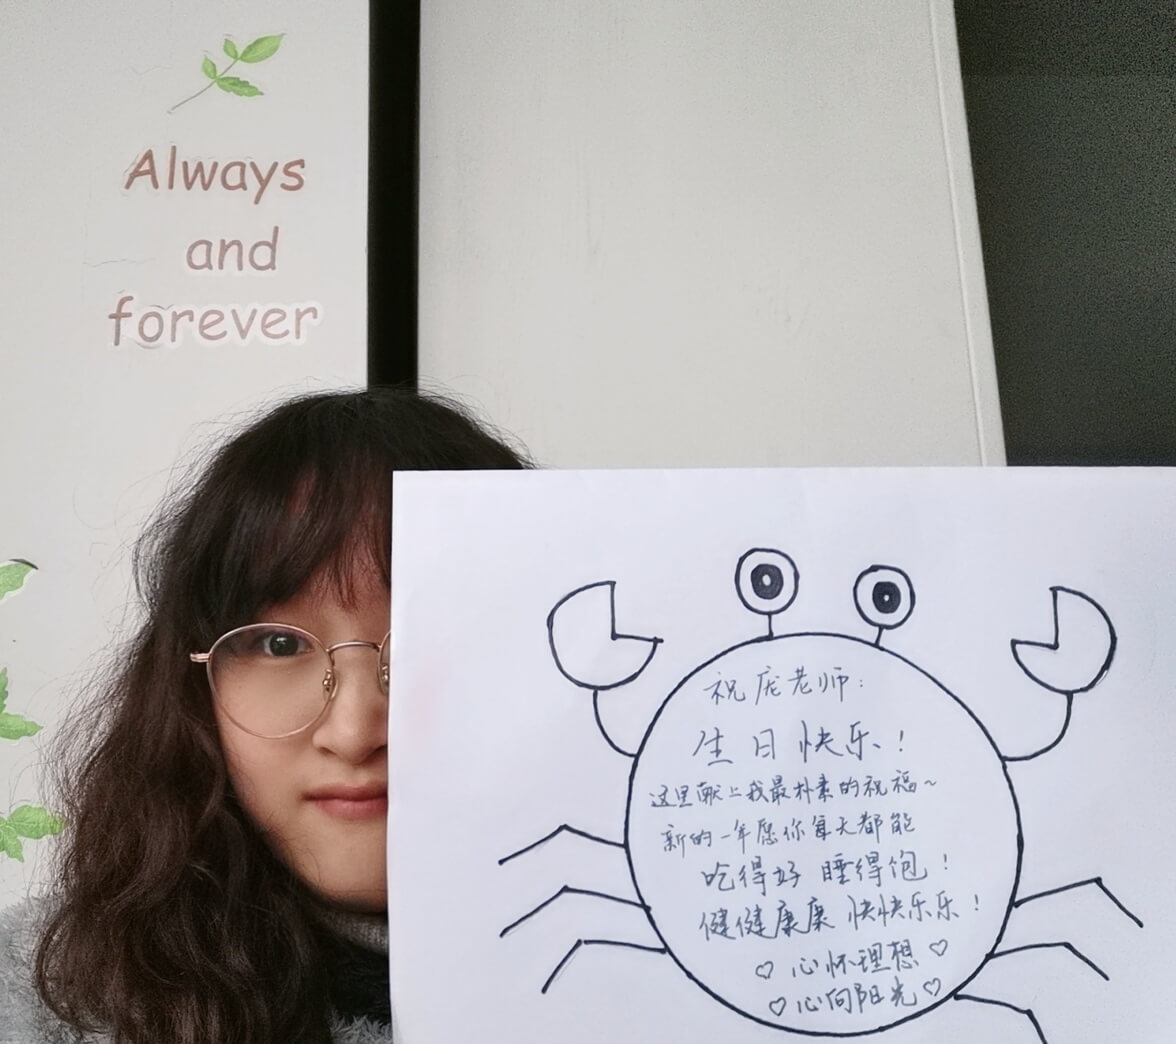 Always
and
forever
祝庞老师：
生日快乐！
这里献上我最朴素的祝福~
新的一年愿你每天都能
吃得好 睡得饱！
健健康康 快快乐乐！
♡ 心怀理想 ♡
♡ 心向阳光 ♡